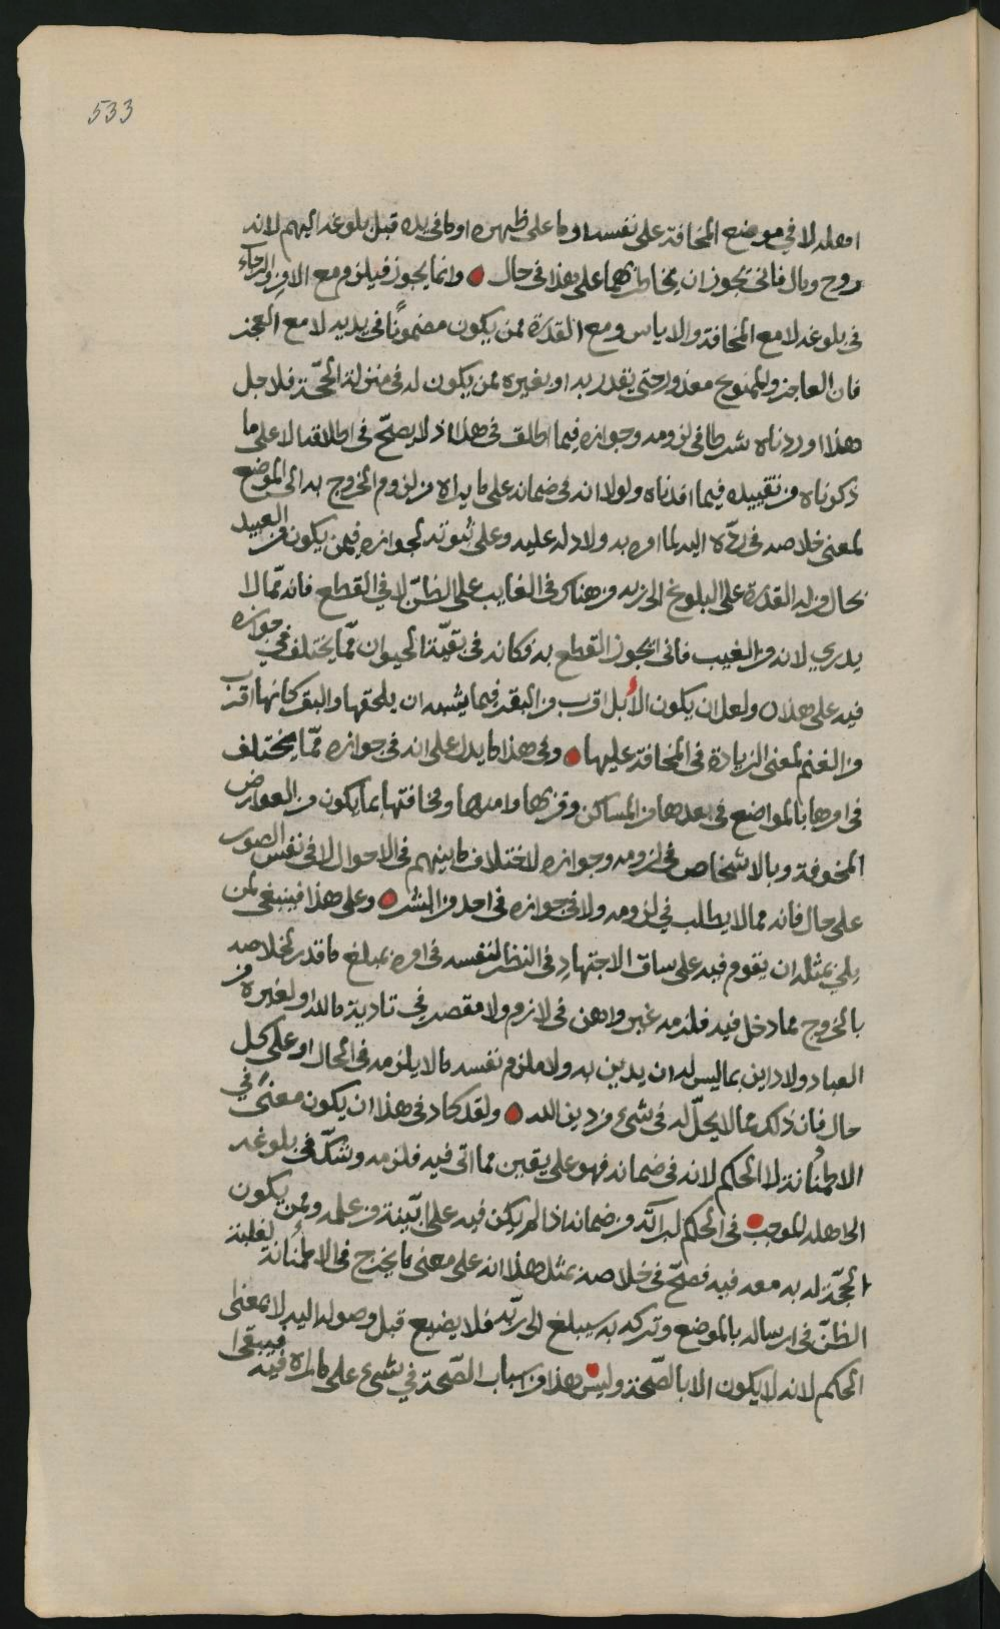 533
اهله لا في موضع المخافة على نفسه او ما على ظهره او ما في يده قبل بلوغه اليهم لانه
روح ومال فانى يجوز ان يخاطر بهما على هذا في حال وانما يجوز فيلزم مع الامن والرجاء
في بلوغه لا مع المخافة والاياس ومع القدرة ممن يكون مضمونًا في يديه لا مع العجز
فان العاجز والممنوع معذور حتى يقدر به او بغيره ممن يكون له في منزلة الحجّة فلاجل
هذا اوردناه شرطا في لزومه وجوازه فيما اطلق في هذا اذ لا يصحّ في اطلاقه الا على ما
ذكرناه من تقييده فيما افدناه ولولا انه في ضمانه على ما يراه من لزوم الخروج به الى الموضع
لمعنى خلاصه في ردّه اليه لما امر به ولا دله عليه وعلى ثبوته لجوازه فيمن يكون من العبيد
بحال من له القدرة على البلوغ الى ربه من هناك في الغايب على الظنّ لا في القطع فانه ممّا لا
يدري لانه من الغيب فانى يجوز القطع به فكانه في بقيّة الحيوان ممّا يختلف في جوازه
فيه على هذا ولعل ان يكون الأبل اقرب من البقر فيما يشبه ان يلحقها والبقر كانها اقرب
من الغنم لمعنى الزيادة في المخافة عليها وفي هذا ما يدل على انه في جوازه ممّا يختلف
في امرها بالمواضع في بعدها من المساكن وقربها وامنها ومخافتها بما يكون من العوارض
المخوفة وبالاشخاص في لزومه وجوازه لاختلاف ما بينهم في الاحوال لا في نفس الصور
على حال فانه مما لا يطلب في لزومه ولا في جوازه في احد من البشر وعلى هذا فينبغي لمن
بلي بمثله ان يقوم فيه على ساق الاجتهادِ في النظر لنفسه في امره بمبلغ ما قدر لخلاصه
بالخروج مما دخل فيه فلزمه غير واهن في لازم ولا مقصر في تادية ما لله او لغيره من
العباد ولا داين بما ليس له ان يدين به ولا ملزم نفسه ما لا يلزمه في الحال او على كل
حال فان ذلك مما لا يحلّ له في شيء من دين الله ولقد كاد في هذا ان يكون معنًى في
الاطمئنانة لا الحكم لانه في ضمانه فهو على يقين مما اتى فيه فلزمه وشكّ في بلوغه
الى اهله الموجب في الحكم لبرآئه من ضمانه اذا لم يكن فيه على بيّنة من علمه وممن يكون
الحجّة له به معه فيه فصحّ في خلاصه بمثل هذا انه على معنى ما يخرج في الاطمئنانة لغلبة
الظنّ في ارساله بالموضع وتركه به سيبلغ الى ربّه فلا يضيع قبل وصوله اليه لا بمعنى
الحكم لانه لا يكون الا بالصّحّة وليس هذا من اسباب الصّحة في شيء على ما نراه فيه فيبقى